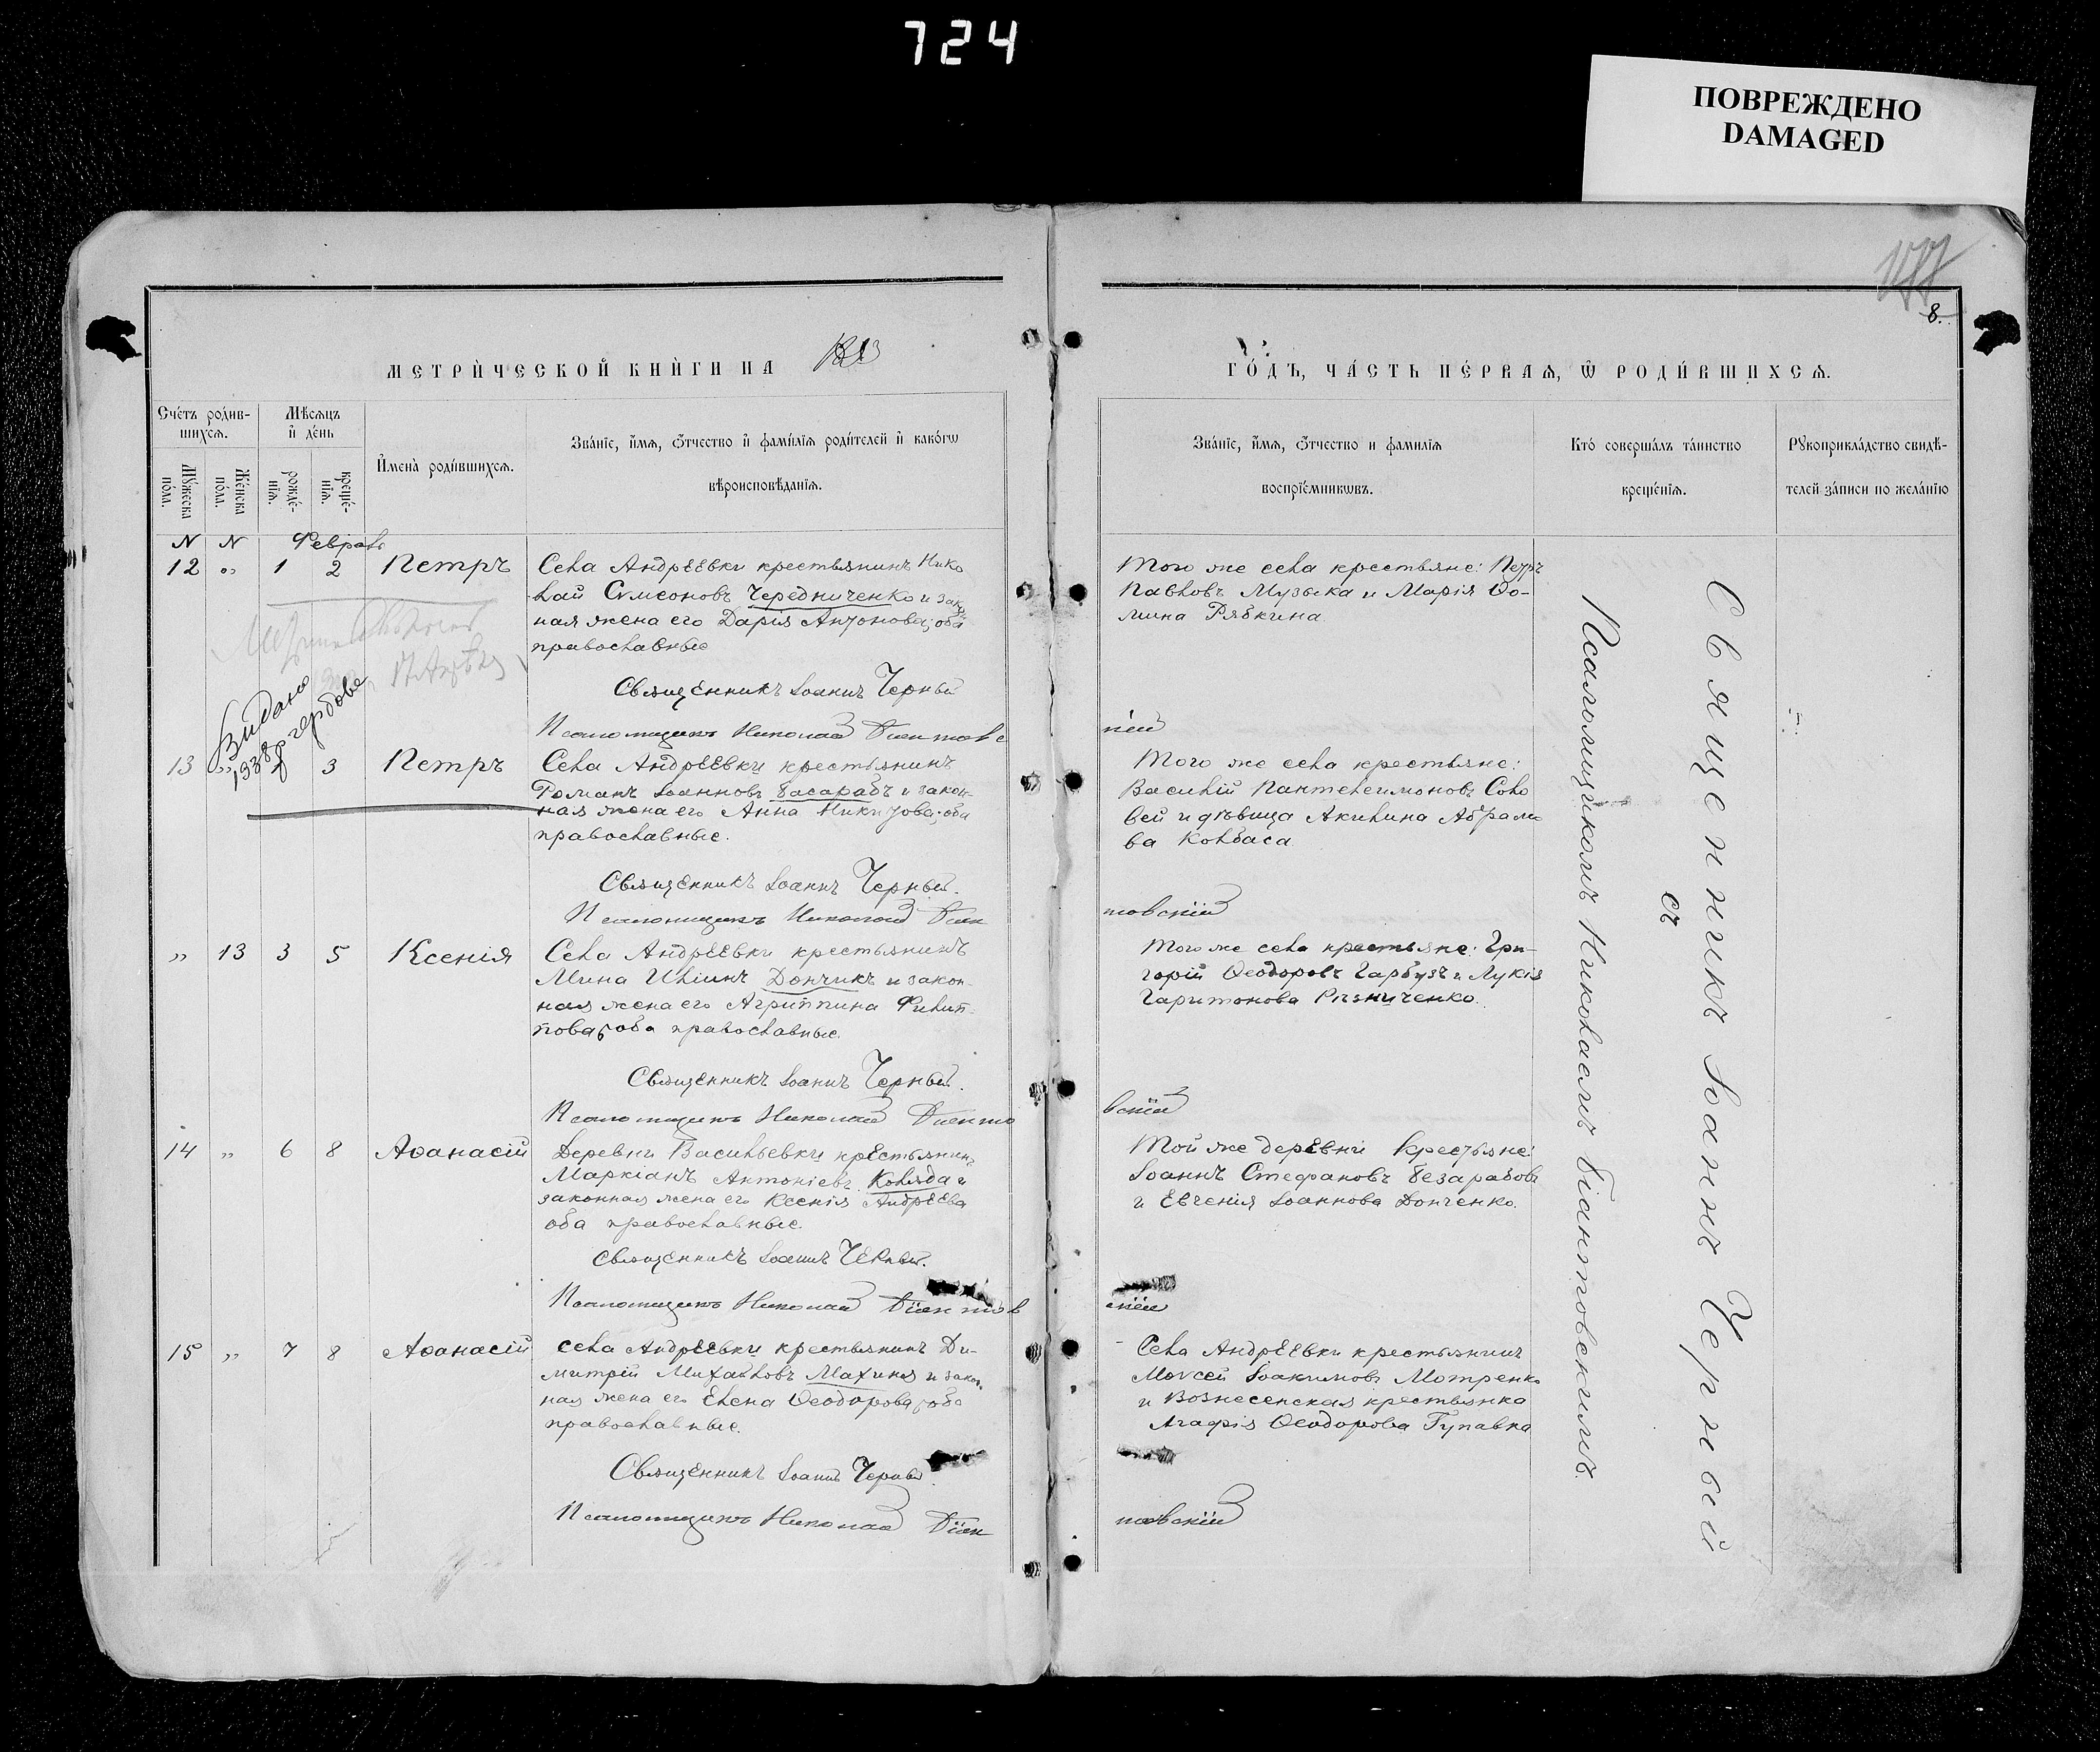 724
ПОВРЕЖДЕНО
DAMAGED
8.
МЕТРИ́ЧЕСКОЙ КНИ́ГИ НА
ГО́ДЪ, ЧА́СТЬ ПЕ́РВАѦ, Ѡ҆ РОДИ́ВШИХСѦ.
Сче́тъ роди́в-
шихсѧ.
Мꙋ́жеска
по́ла.
Же́нска
по́ла.
Мѣ́сѧцъ
и҆ де́нь
рожде́-
нїѧ.
креще́-
нїѧ.
И҆мена̀ роди́вшихсѧ.
Зва́нїе, и҆́мѧ, ѻ҆́тчество и҆ фами́лїѧ роди́телей и҆ како́гѡ
вѣроисповѣ́данїѧ.
Зва́нїе, и҆́мѧ, ѻ҆́тчество и фами́лїѧ
воспрїе́мникѡвъ.
Кто̀ соверша́лъ та́инство
креще́нїѧ.
Рꙋкоприкла́дство свидѣ́-
телей за́писи по жела́нїю
N N Февраль
12 „ 1 2 Петръ
Села Андрѣевки крестьянинъ Нико
лай Сѵмеоновъ Чередниченко и зак
ная жена его Дарія Антонова; оба
православные
Священникъ Іоаннъ Черный
Псаломщикъ Николай Біантовс
кій
Того же села крестьяне: Петръ
Павловъ Музыка и Марія Ѳо-
мина Рябкина
Видано
1938 р
13 „ 3 Петръ
Села Андрѣевки крестьянинъ
Романъ Іоанновъ Басарабъ и закон-
ная жена его Анна Никитова; оба
православные.
Священникъ Іоаннъ Черный.
Псаломщикъ Николай Біан
товскій
Того же села крестьяне:
Василій Пантелеимоновъ Соло
вей и дѣвица Акилина Абрамо
ва Колбаса.
„ 13 3 5 Ксенія
Села Андрѣевки крестьянинъ
Мина Иліинъ Дончикъ и закон-
ная жена его Агриппина Филип-
пова, оба православные.
Священникъ Іоаннъ Черный.
Псаломщикъ Николай Біанто
вскій
Того же села крестьяне: Гри-
горій Ѳеодоровъ Гарбузъ и Лукія
Харитонова Рѣзниченко.
14 „ 6 8 Аѳанасій
Деревни Васильевки крестьянинъ
Маркіанъ Антоніевъ Коляда и
законная жена его Ксенія Андрѣева
оба православные.
Священникъ Іоаннъ Черный.
Псаломщикъ Николай Біантов
скій
Той же деревни крестьяне:
Іоаннъ Стефановъ Безарабовъ
и Евгенія Іоаннова Донченко.
15 „ 7 8 Аѳанасій
Села Андрѣевки крестьянинъ Ди-
митрій Михайловъ Махиня и закон.
ная жена его Елена Ѳеодорова, оба
православные.
Священникъ Іоаннъ Черный.
Псаломщикъ Николай Біан
товскій
Села Андрѣевки крестьянинъ
Моѵсей Іоакимовъ Мотренко
и Вознесенская крестьянка
Агафія Ѳеодорова Гупавка
Священникъ Іоаннъ Черный
съ
Псаломщикомъ Николаемъ Біантовскимъ.